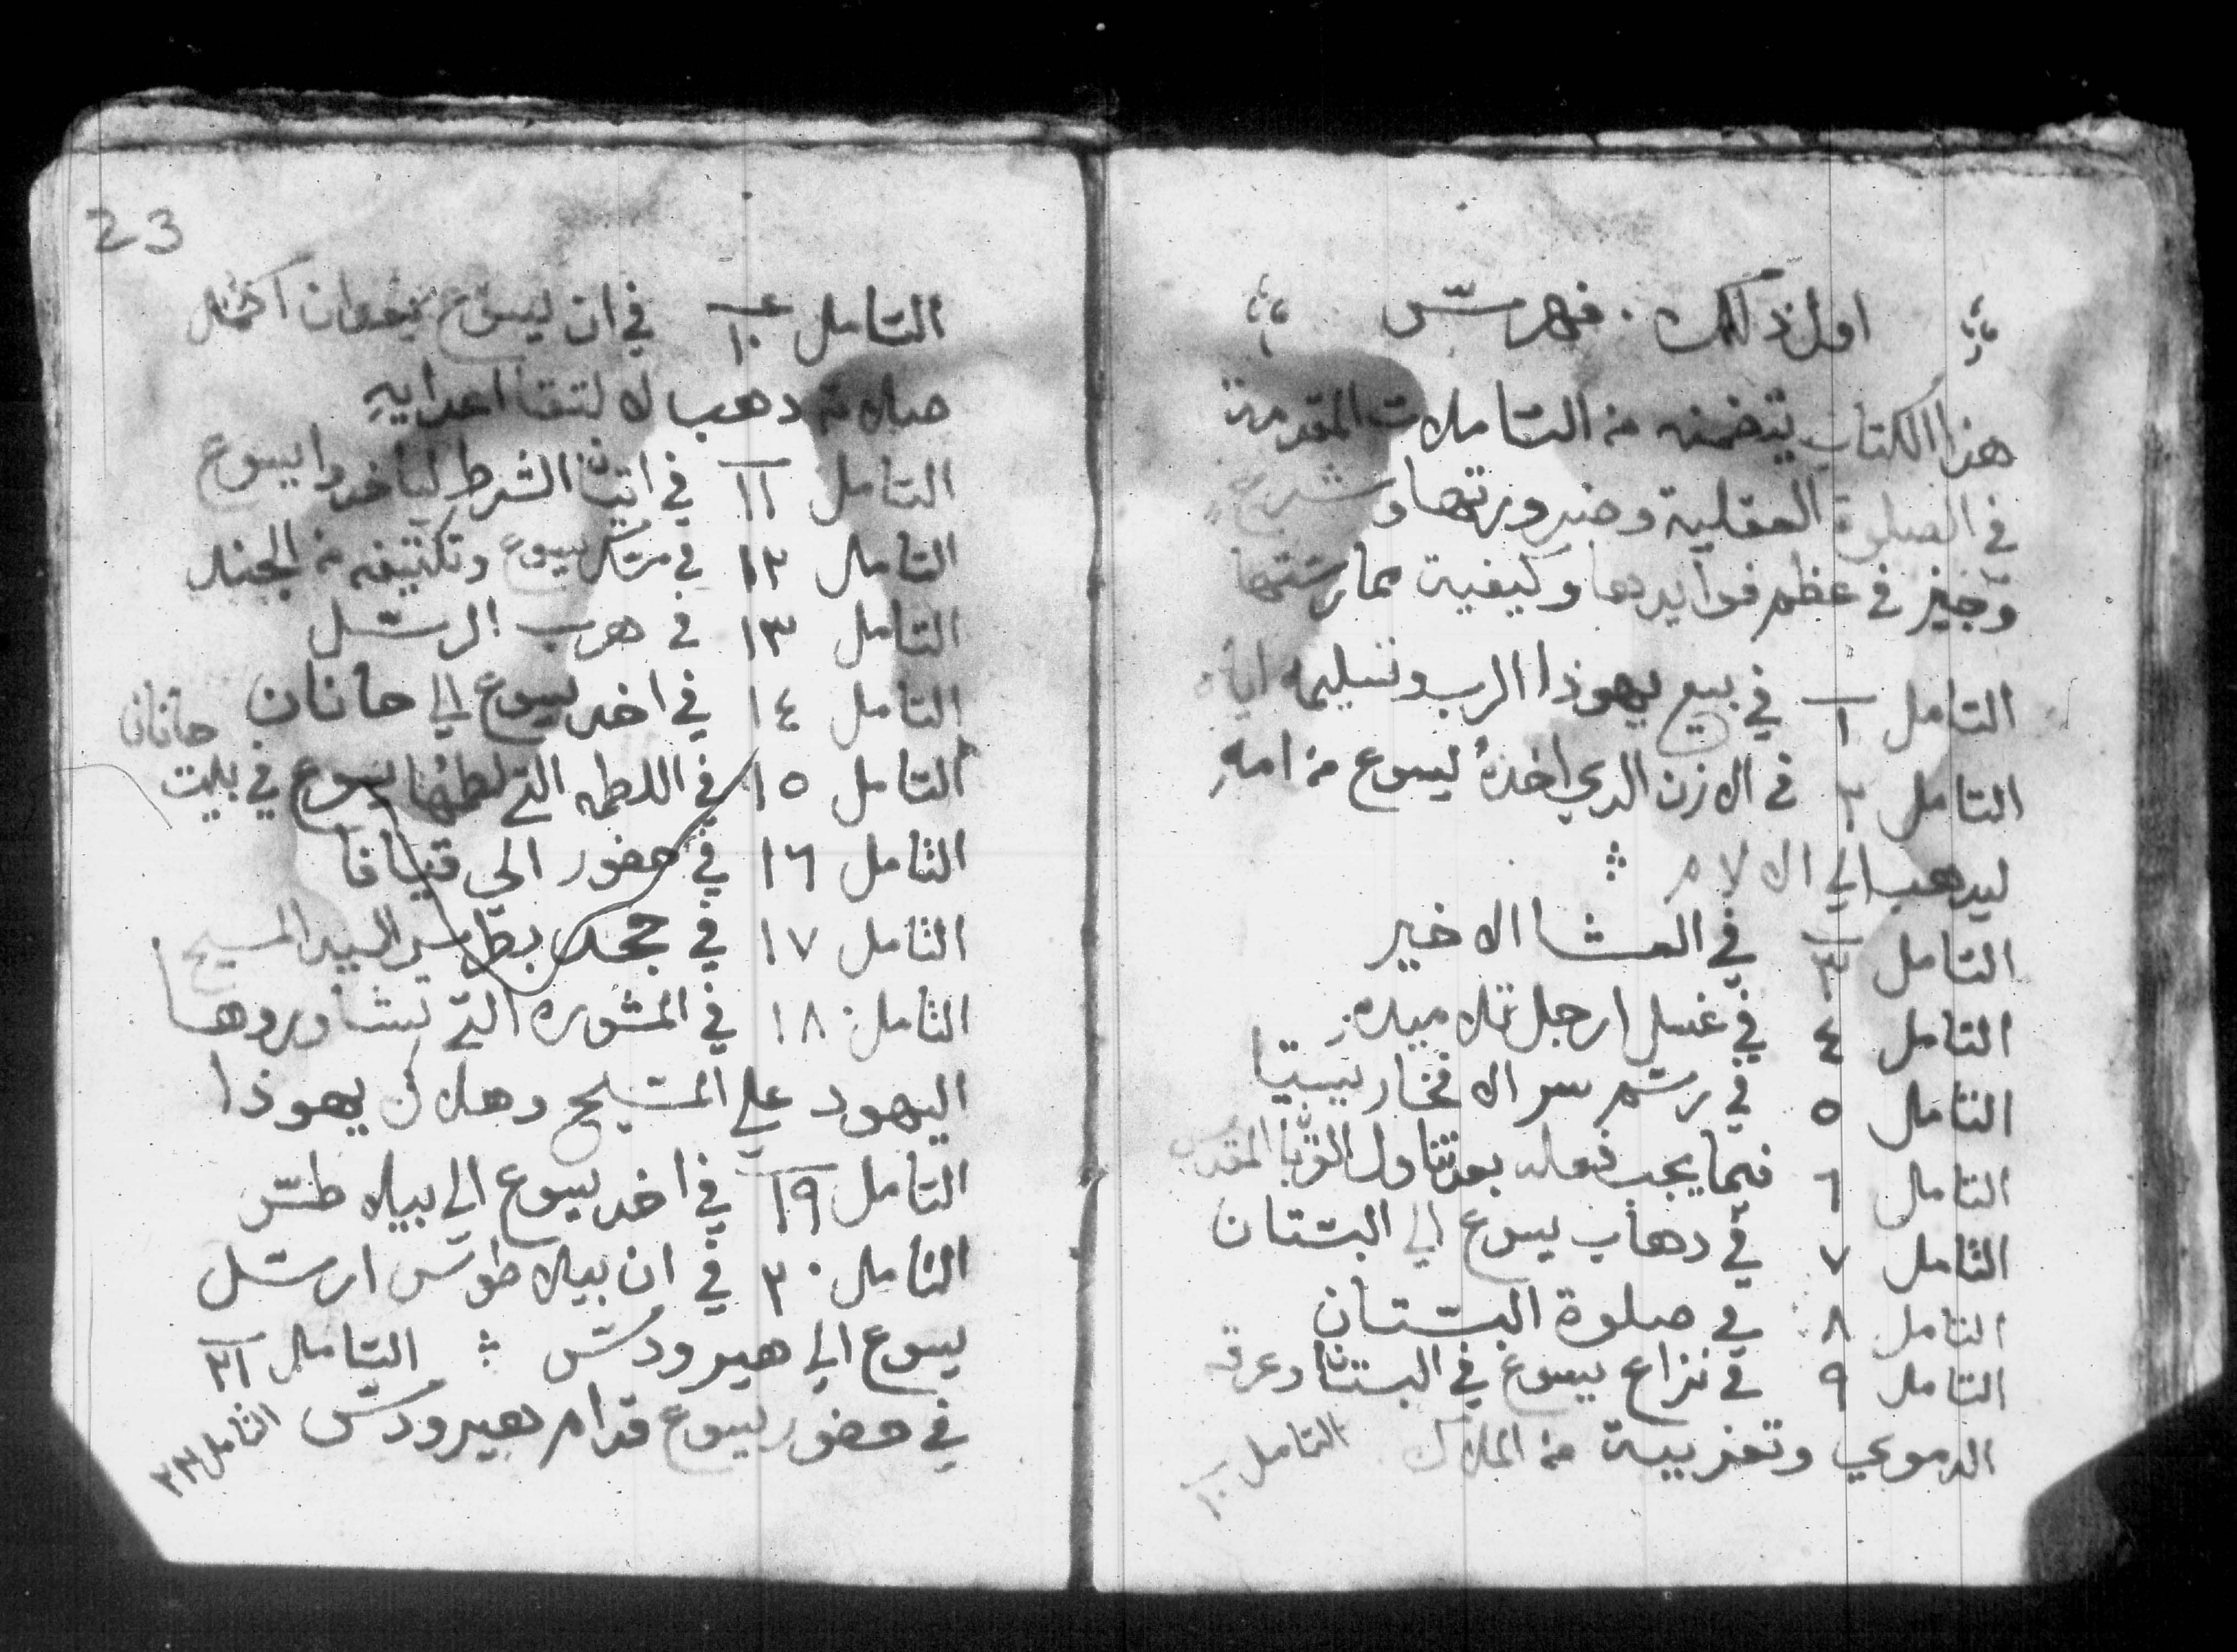 اول ذلك . فهرست
هذا الكتاب يتضمنه من التاملات المقدمة
في الصلوة العقلية وضرورتها وشرح
وجيز في عظم فوايدها وكيفية ممارستها
التامل ١ في بيع يهوذا الرب وتسليمه اياه
التامل ٢ في الازن الدي اخدهُ ليسوع من امهِ
ليدهب الي الالام
التامل ٣ في العشا الاخير
التامل ٤ في غسل ارجل تلاميده
التامل ٥ في رسم سر الافخاريستيا
التامل ٦ فيما يجب فعله بعد تناول القربان المقدس
التامل ٧ في دهاب يسوع الي البستان
التامل ٨ في صلوة البستان
التامل ٩ في نزاع يسوع في البستان وعرقه
الدموي وتعزيية من الملاك التامل ١٠
23
التامل ١٠ في ان يسوع بعد ان اكمل
صلاته دهب لالتقا اعدايهِ
التامل ١١ في اتيان الشرط لياخدوا يسوع
التامل ١٢ في مسك يسوع وتكتيفه من الجند
التامل ١٣ في هرب الرسل
التامل ١٤ في اخد يسوع الي حانان
التامل ١٥ في اللطمه التي لطمها يسوع في بيت حانان
التامل ١٦ في حضور الي قيافا
التامل ١٧ في جحد بطرس السيد المسيح
التامل ١٨ في المشوره التي تشاوروها
اليهود علي المسيح وهلاك يهوذا
التامل ١٩ في اخد يسوع الي بيلاطس
التامل ٢٠ في ان بيلاطوس ارسل
يسوع الي هيرودس التامل ٢١
في حضور يسوع قدام هيرودس التامل ٢٢